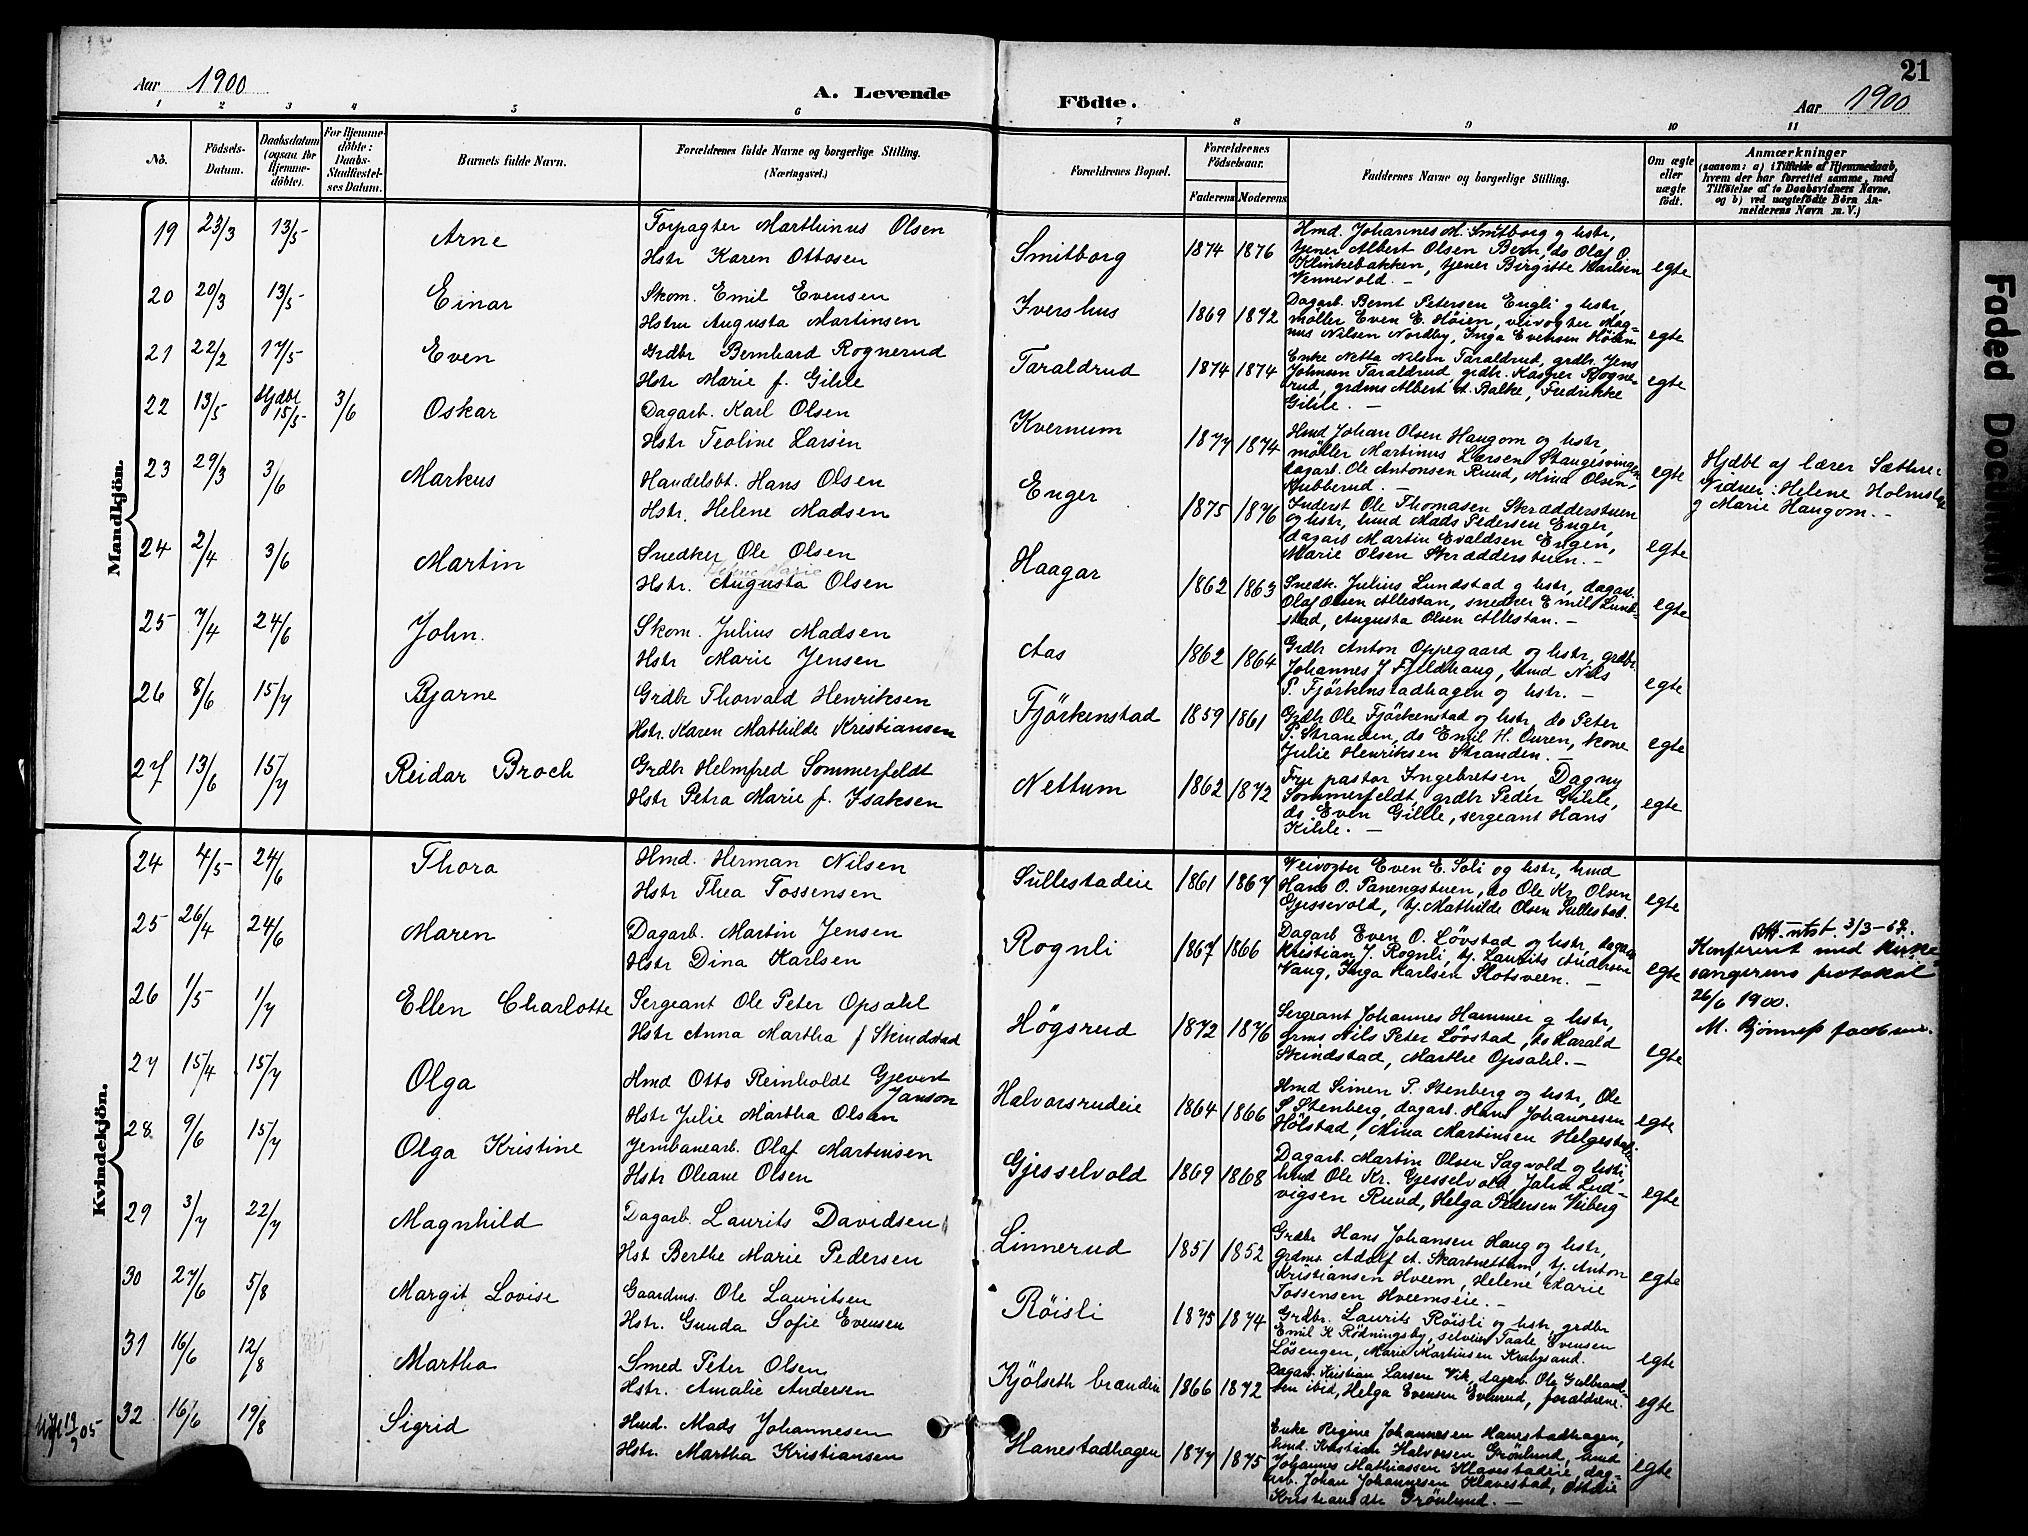 21
Aar 1900
A. Levende
Födte.
Aar 1900
1 2 3 4 5 6 7 8 9 10 11
No.
Födsels-Datum.
Daabsdatum (ogsaa for Hjemmedöbte).
For Hjemmedöbte: Daabs-Stadfæstelses Datum.
Barnets fulde Navn.
Forældrenes fulde Navne og borgerlige Stilling. (Næringsvei.)
Forældrenes Bopæl.
Forældrenes Födselsaar.
Faderens Moderens
Faddernes Navne og borgerlige Stilling.
Om ægte eller uægte födt.
Anmærkninger
(saasom: a) i Tilfælde af Hjemmedaab, hvem der har forrettet samme, med Tilföielse af to Daabsvidners Navne. og b) ved uægtefödte Börn Anmelderens Navn m. V.)
Mandkjön.
19 23/3 13/5 Arne
Forpagter Marthinus Olsen
Hstr Karen Ottosen
Smitborg 1874 1876
Hmd. Johannes M. Smitborg g hstr,
tjener Albert Olsen Bern, do Olaf O.
Klinkebakken, tjener Birgitte Karlsen
Vennevold. –
egte
20 20/3 13/5 Einar
Skom. Emil Evensen
Hstru Augusta Martinsen
Ivershus 1869 1872
Dagarb. Bernt Petersen Engli g hstr,
møller Even E. Høien, veivogter Mag-
nus Nilsen Nordby, Inga Evensen Høien
egte
21 22/2 17/5 Even
Grdbr Bernhard Rognerud
Hstr Marie f. Gihle
Taraldrud 1874 1874
Enke Netta Nilsen Taraldrud, grdbr Jens
Johnsen Taraldrud grdbr. Kasper Rogne-
rud, grdms Albert A. Balke, Fredrikke
Gihle. –
egte
22 13/5 Hjdbt 15/5 3/6 Oskar
Dagarb. Karl Olsen
Hstr Teoline Larsen
Kvernum 1877 1874
Hmd Johan Olsen Haugom og hstr,
møller Martinus Larsen Stangesvingen
dagarb. Ole Antonsen Ruud, Mina Olsen,
Hubberud. –
egte
Hjdbt af lærer Sæthre
Vidner: Helene
g Marie Haugom. –
23 29/3 3/6 Markus
Handelsbt. Hans Olsen
Hstr. Helene Madsen
Enger 1875 1876
Inderst Ole Thomasen Skrædderstuen
og hstr, hmd Mads Pedersen Enger,
dagarb Martin Evaldsen Engen,
Marie Olsen Skrædderstuen. –
egte
24 2/4 3/6 Martin
Snedker Ole Olsen
Hstr. Augusta Olsen
Haagar 1862 1863
Snedk. Julius Lundstad g hstr, dagarb.
Olaf Olsen Allestan, snedker Emil Lund-
stad, Augusta Olsen Allestan. –
egte
25 7/4 24/6 John.
Skom. Julius Madsen
Hstr Marie Jensen
Aas 1862 1864
Grdbr Anton Oppegaard og hstr, grdbr
Johannes J Fjeldhaug, hmd Nils
P. Fjörkenstadhagen og hstr. –
egte
26 8/6 15/7 Bjarne
Grdbr Thorvald Henriksen
Hstr. Karen Mathilde Kristiansen
Fjörkenstad 1859 1861
Grdbr Ole Fjörkenstad og hstr, do Peter
P. Stranden, ds Emil H. Ouren, kone
Julie Henriksen Stranden. –
egte
27 13/6 15/7 Reidar Broch
Grdbr Helmfred Sommerfeldt
Hstr Petra Marie f. Isaksen
Nettum 1862 1872
Frue pastor Ingebretsen, Dagny
Sommerfeldt, grdbr Peder Gihle,
ds. Even Gihle, sergeant Hans
Kihle. –
egte
Kvindekjön.
24 4/5 24/6 Thora
Hmd. Herman Nilsen
Hstr Thea Tossensen
Sullestadeie 1861 1867
Veivogter Even E. Soli og hstr, hmd
Hans O. Panengstuen, do Ole Kr. Olsen
Gjessevold, tj. Mathilde Olsen Sullestad.
egte
25 26/4 24/6 Maren
Dagarb. Martin Jensen
Hstr Dina Karlsen
Rognli 1867 1866
Dagarb Even O. Løvstad og hstr, dagarb
Kristian J. Rognli, tj. Laurits Andersen
Vang, Inga Karlsen Slotsveen. –
egte
Att. utst. 3/3-67.
Konfereret med kirke-
sangerens protokol
26/6 1900.
M.
26 1/5 1/7 Ellen Charlotte
Sergeant Ole Peter Opsahl
Hstr Anna Martha f Skindstad
Högsrud 1872 1876
Sergeant Johannes Hammer g hstr,
grms Nils Peter Løvstad, ds Harald
Skindstad, Marthe Opsahl. –
egte
27 15/4 15/7 Olga
Hmd Otto Reinholdt Gjevert
Janson
Hstr Julie Martha Olsen
Halvorsrudeie 1864 1866
Hmd Simen P. Stenberg og hstr, Ole
S Stenberg, dagarb. Hans Johannesen
Hölstad, Mina Martinsen Helgestad
egte
28 9/6 15/7 Olga Kristine
Jernbanearb. Olaf Martinsen
Hstr Oleane Olsen
Gjesselvold 1869 1868
Dagarb. Martin Olsen Sagvold g hstr,
hmd Ole Kr. Gjesselvold, Julia Lud-
vigsen Ruud, Helga Pedersen Viberg
egte
29 3/7 22/7 Magnhild
Dagarb. Laurits Davidsen
Hst Berthe Marie Pedersen
Linnerud 1851 1852
Grdbr Hans Johansen Haug og hstr,
grdms. Adolf A. Skartnettum, tj. Anton
Kristiansen Hveem, Helene Marie
Tossensen Hveemseie. –
egte
30 27/6 5/8 Margit Lovise
Gaardms. Ole Lauritsen
Hstr. Gunda Sofie Evensen
Röisli 1875 1874
Grdbr. Laurits Röisli og hstr, grdbr
Emil K Rödningsby, selveier Paale Evensen
Lösengen, Marie Martinsen Krabysand.
egte
31 16/6 12/8 Martha
Smed Peter Olsen
Hstr. Amalie Andersen
Kjölseth brændn 1866 1872
Dagarb. Kristian Larsen Vik, dagarb Ole Gulbrand-
sen ibid, Helga Evensen Evenrud, forældrene.
egte
32 16/6 19/8 Sigrid
Hmd. Mads Johannesen
Hstr. Martha Kristiansen
Hanestadhagen 1877 1875
Enke Regine Johannesen Hanestadhagen,
hmd. Kristian Halvorsen Grönlund, hmd
Johannes Mathiassen Klavestadeie, dag-
arb. Johan Johannesen Klavestad,
Kristiansdtr Grönlund. –
egte
19/9 05
Faded Document